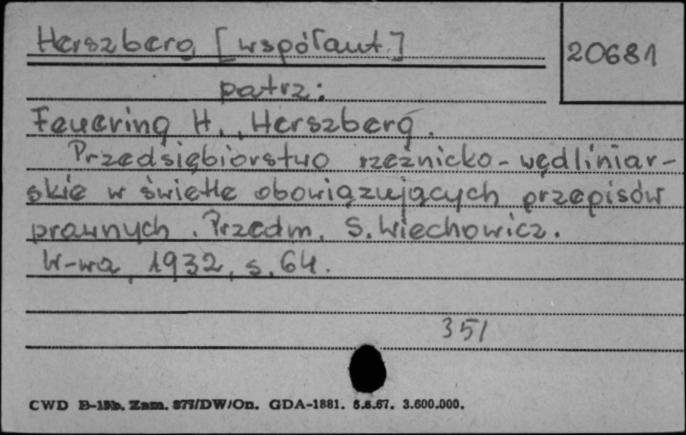 Herszberg [współaut.]
20681
patrz:
Feuering H., Herszberg.
Przedsiębiorstwo rzeźnicko-wędliniar-
skie w świetle obowiązujących przepisów
prawnych. Przedm. S. Wiechowicz.
W-wa, 1932, s. 64.
351
CWD B-15b. Zam. 877/DW/On. GDA-1881. 5.8.67. 3.600.000.